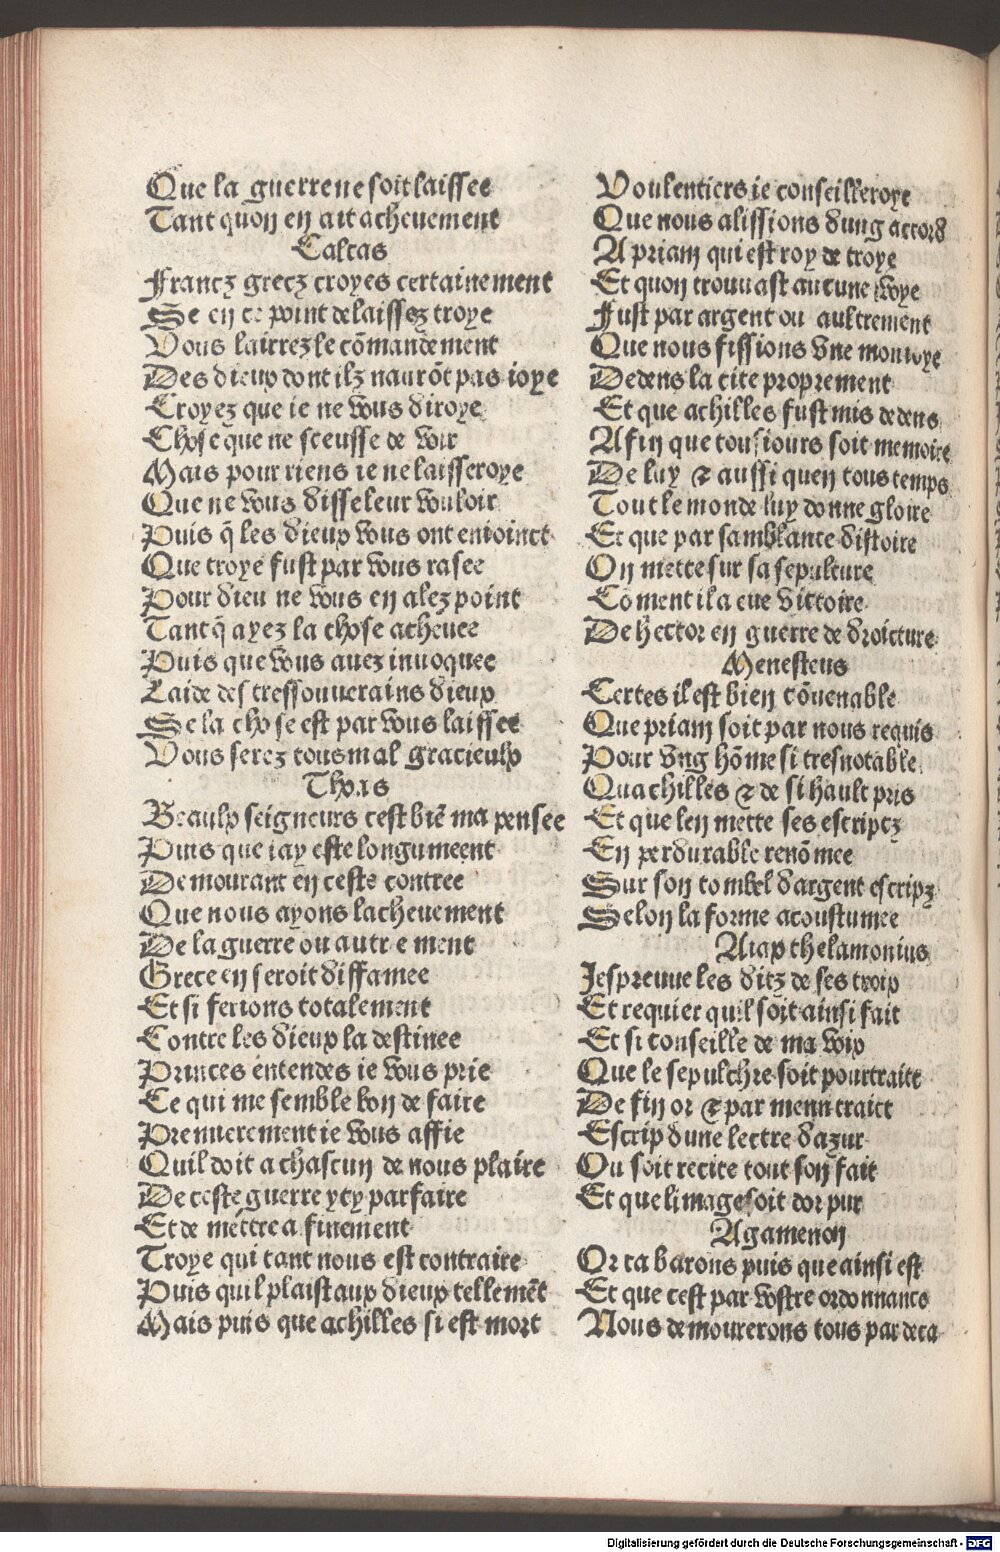 Que la guerre ne soit laissee
Tant quon en ait acheuement
Calcas
Francz grecz croyes certainement
Se en ce point delaissez troye
Vous lairrez le cõmandement
Des dieux dont ilz naurõt pas ioye
Croyez que ie ne vous diroye
Chose que ne sceusse de voir
Mais pour riens ie ne laisseroye
Que ne vous disse leur vouloir
Puis q̃ les dieux vous ont enioinct
Que troye fust par vous rasee
Pour dieu ne vous en alez point
Tant q̃ ayez la chose acheuee
Puis que vous auez inuoquee
Laide des tressouuerains dieux
Se la chose est par vous laissee
Vous serez tous mal gracieulx
Thoas
Beaulx seigneurs cest biẽ ma pensee
Puis que iay este longumeent
Demourant en ceste contree
Que nous ayons lacheuement
De la guerre ou autrement
Grece en seroit diffamee
Et si ferions totalement
Contre les dieux la destinee
Princes entendes ie vous prie
Ce qui me semble bon de faire
Premierement ie vous affie
Quil doit a chascun de nous plaire
De ceste guerre ycy parfaire
Et de mettre a finement
Troye qui tant nous est contraire
Puis quil plaist aux dieux tellemẽt
Mais puis que achilles si est mort
Voulentiers ie conseilleroye
Que nous alissions dung accord
A priam qui est roy de troye
Et quon trouuast aucune voye
Fust par argent ou aultrement
Que nous fissions vne monioye
Dedens la cite proprement
Et que achilles fust mis dedens
Afin que tousiours soit memoire
De luy & aussi quen tous temps
Tout le monde luy donne gloire
Et que par samblance distoire
On mette sur sa sepulture
Cõment il a eue victoire
De hector en guerre de droicture
Menesteus
Certes il est bien cõuenable
Que priam soit par nous requis
Pour vng hõme si tresnotable
Quachilles & de si hault pris
Et que len mette ses escriptz
En perdurable renõmee
Sur son tombel dargent escripz
Selon la forme acoustumee
Aiax thelamonius
Jespreuue les ditz de ses troix
Et requier quil soit ainsi fait
Et si conseille de ma voix
Que le sepulchre soit pourtraitt
De fin or & par menu traict
Escrip dune lectre dazur
Ou soit recite tout son fait
Et que limage soit dor pur
Agamenon
Or ca barons puis que ainsi est
Et que cest par vostre ordonnance
Nous demourerons tous par deca
Digitalisierung gefördert durch die Deutsche Forschungsgemeinschaft - DFG